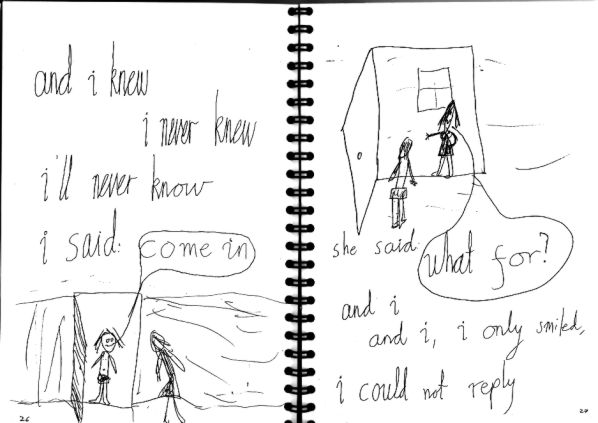 and i knew
i never knew
i'll never know
i said: come in
26
she said: what for?
and i
and i, i only smiled,
i could not reply
27